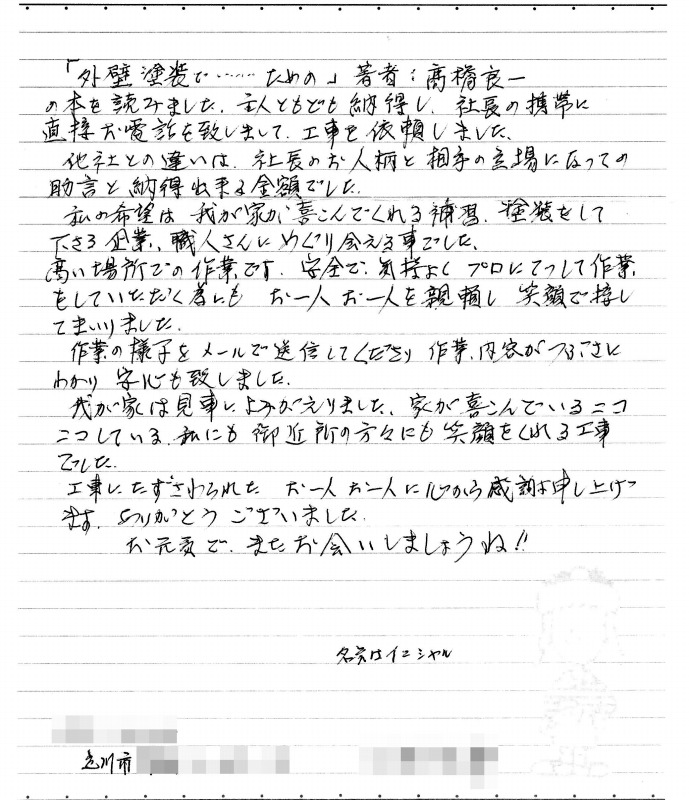 「外壁塗装で……ための」著者：髙橋良一
の本を読みました。主人ともども納得し、社長の携帯に
直接お電話を致しまして、工事を依頼しました。
他社との違いは、社長のお人柄と相手の立場になっての
助言と納得出来る金額でした。
私の希望は我が家が喜こんでくれる補習、塗装をして
下さる企業、職人さんにめぐり会える事でした。
高い場所での作業です。安全で、気持よくプロにてっして作業
をしていただく為にも お一人お一人を親頼し 笑顔で接し
てまいりました。
作業の様子をメールで送信してくださり 作業、内容がつぶさに
わかり 安心も致しました。
我が家は見事によみがえりました。家が喜こんでいるニコ
ニコしている、私にも御近所の方々にも笑顔をくれる工事
でした。
工事にたずさわられた お一人お一人に心から感謝申し上げ
ます。ありがとうございました。
お元気で、またお会いしましょうね!!
名前はイニシャル
立川市